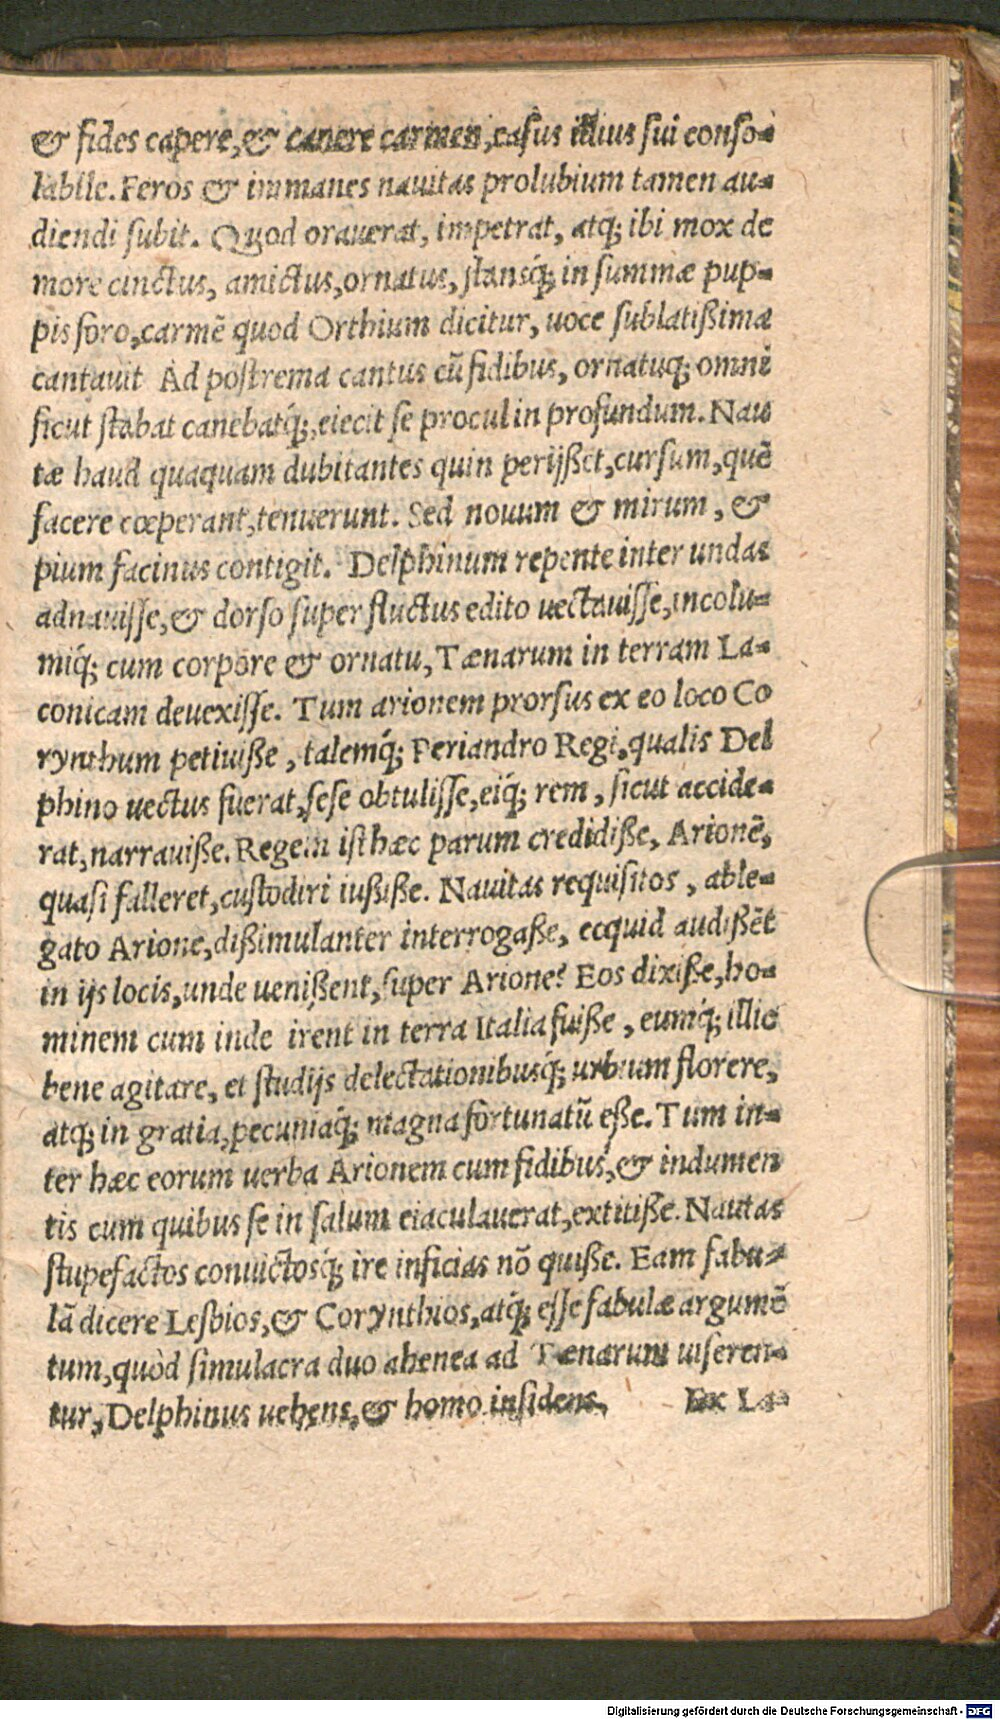 & fides capere, & canere carmen, casus illius sui conso-
labile. Feros & immanes nauitas prolubium tamen au-
diendi subit. Quod orauerat, impetrat, atq; ibi mox de
more cinctus, amictus, ornatus, stansq́; in summæ pup-
pis foro, carmē quod Orthium dicitur, uoce sublatißima
cantauit Ad postrema cantus cū fidibus, ornatuq; omni
sicut stabat canebatq́;, eiecit se procul in profundum. Nau
tæ haud quaquam dubitantes quin perijßet, cursum, quē
facere cœperant, tenuerunt. Sed nouum & mirum, &
pium facinus contigit. Delphinum repente inter undas
adnauisse, & dorso super fluctus edito uectauisse, incolu-
miq́; cum corpore & ornatu, Tænarum in terram La-
conicam deuexisse. Tum arionem prorsus ex eo loco Co
rynthum petiuiße, talemq́; Periandro Regi, qualis Del
phino uectus fuerat, sese obtulisse, eiq́; rem, sicut accide-
rat, narrauiße. Regem isthæc parum credidiße, Arionē,
quasi falleret, custodiri iußiße. Nauitas requisitos, able-
gato Arione, dißimulanter interrogaße, ecquid audißēt
in ijs locis, unde uenißent, super Arione? Eos dixiße, ho-
minem cum inde irent in terra Italia fuiße, eumq́; illic
bene agitare, et studijs delectationibusq́; urbium florere,
atq; in gratia, pecuniaq́; magna fortunatū eße. Tum in-
ter hæc eorum uerba Arionem cum fidibus, & indumen
tis cum quibus se in salum eiaculauerat, extitiße. Nautas
stupefactos conuictosq́; ire inficias nō quiße. Eam fabu-
lā dicere Lesbios, & Corynthios, atq́; esse fabulæ argumē
tum, quòd simulacra duo ahenea ad Tænarum uiseren-
tur, Delphinus uehens, & homo insidens.
Ex La-
Digitalisierung gefördert durch die Deutsche Forschungsgemeinschaft - DFG